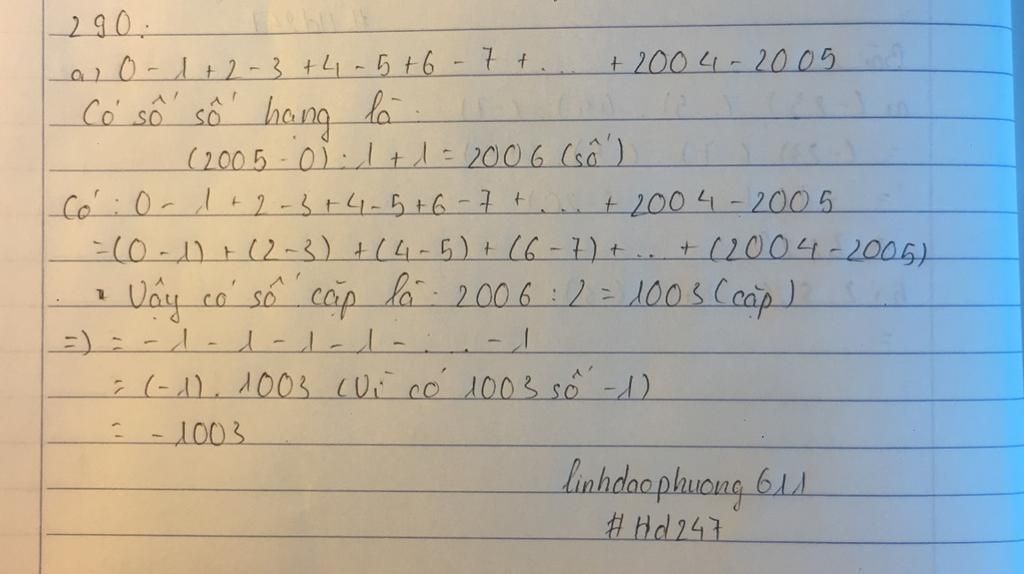 290:
a, 0 - 1 + 2 - 3 + 4 - 5 + 6 - 7 + ... + 2004 - 2005
Có số số hạng là:
(2005 - 0) : 1 + 1 = 2006 (số)
Có : 0 - 1 + 2 - 3 + 4 - 5 + 6 - 7 + ... + 2004 - 2005
= (0 - 1) + (2 - 3) + (4 - 5) + (6 - 7) + ... + (2004 - 2005)
Vậy có số cặp là: 2006 : 2 = 1003 (cặp)
=) = - 1 - 1 - 1 - 1 - ... - 1
= (-1) . 1003 (Vì có 1003 số -1)
= - 1003
linhdaophuong 611
#Hd247